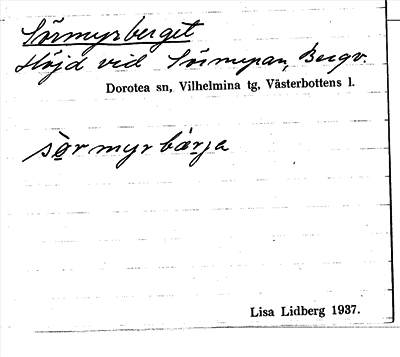 Sörmyrberget
Höjd vid Sörmyran, Bergv.
Dorotea sn, Vilhelmina tg, Västerbottens l.
sörmyrbärja
Lisa Lidberg 1937.